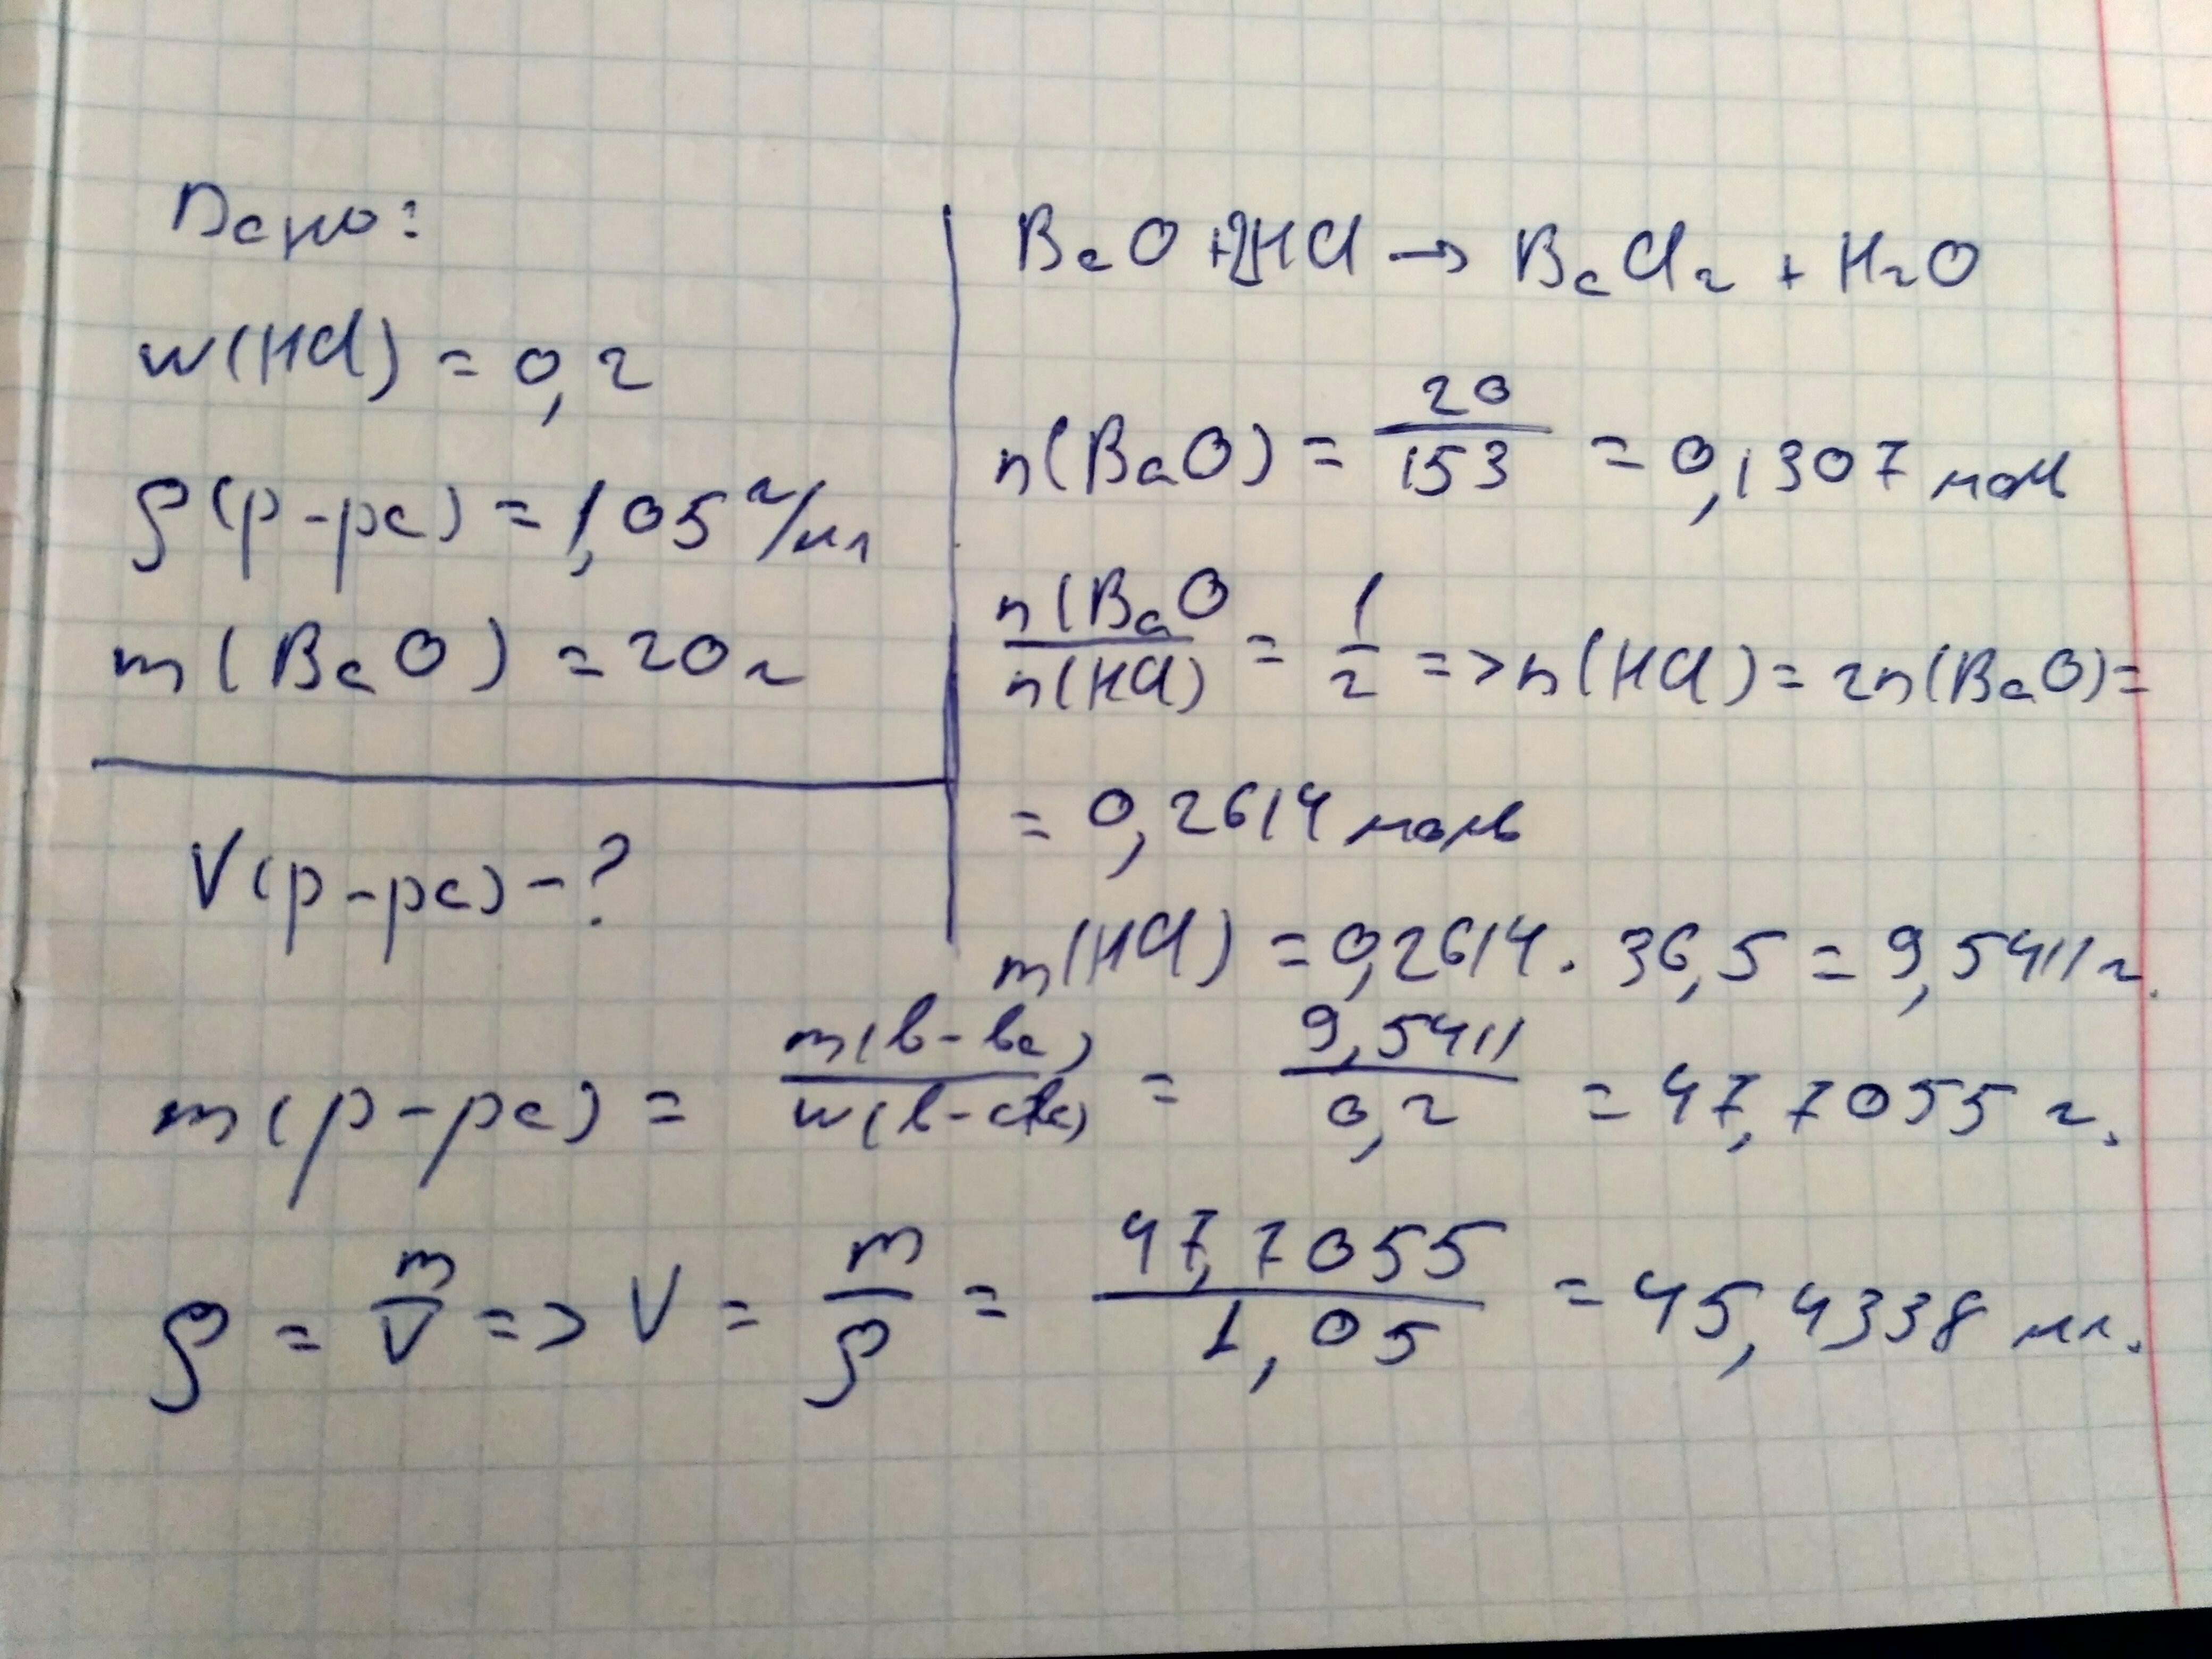 Дано:
w(HCl) = 0,2
ρ(р-ра) = 1,05 г/мл
m(BaO) = 20 г
V(р-ра) - ?
BaO + 2HCl → BaCl₂ + H₂O
n(BaO) = 20/153 = 0,1307 моль
n(BaO/n(HCl) = 1/2 => n(HCl) = 2n(BaO) =
= 0,2614 моль
m(HCl) = 0,2614 · 36,5 = 9,5411 г.
m(р-ра) = m(в-ва)/w(в-ва) = 9,5411/0,2 = 47,7055 г.
ρ = m/V => V = m/ρ = 47,7055/1,05 = 45,4338 мл.